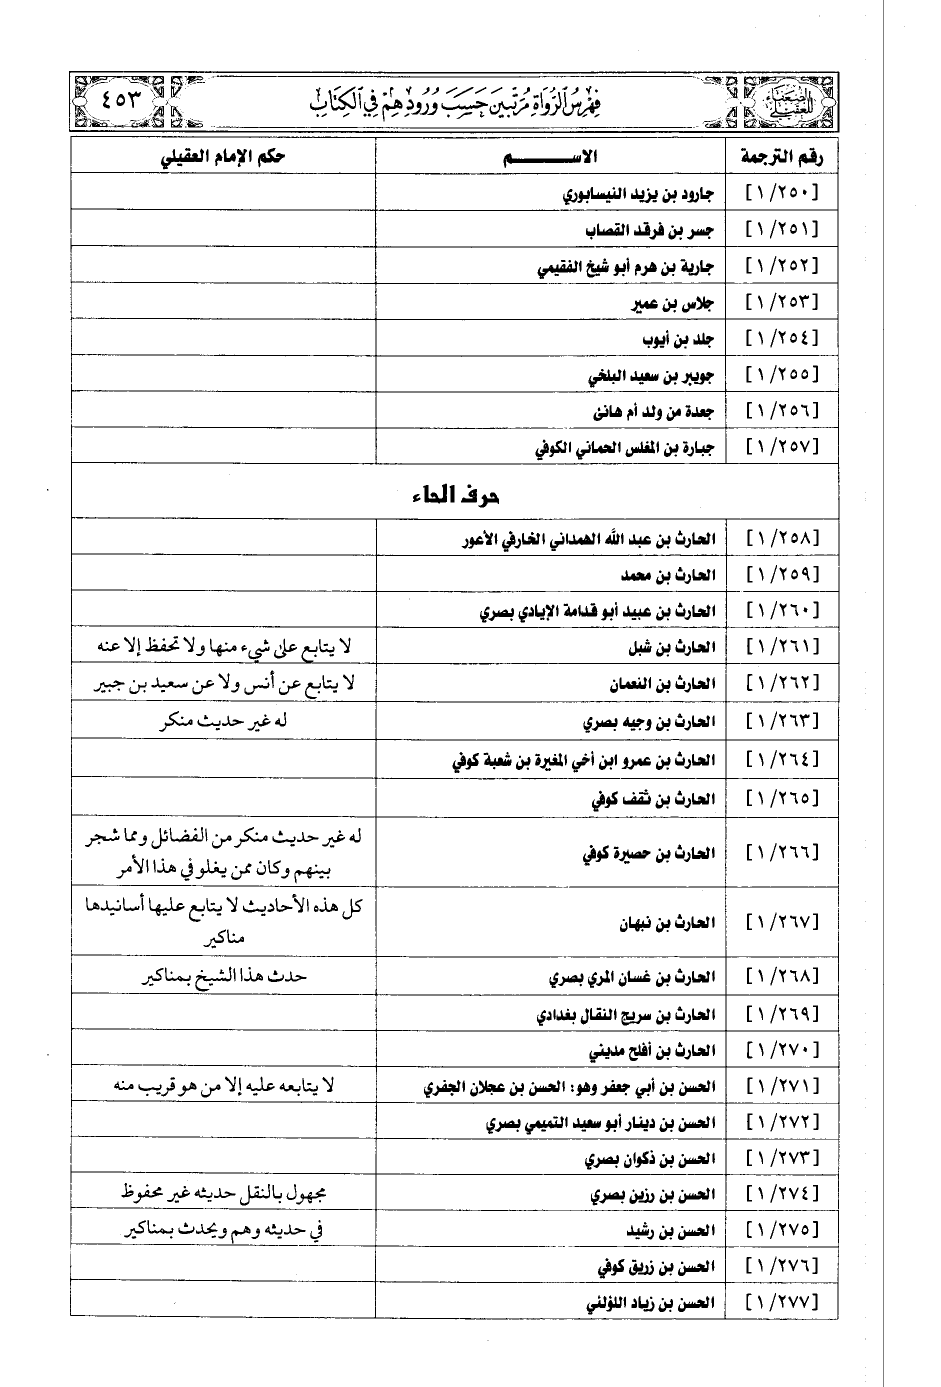 الضعفاء للعقيلي
فهرس الرواة مرتبين حسب ورودهم في الكتاب
٤٥٣
رقم الترجمة الاســـــم حكم الإمام العقيلي
[١/٢٥٠] جارود بن يزيد النيسابوري
[١/٢٥١] جسر بن فرقد القصاب
[١/٢٥٢] جارية بن هرم أبو شيخ الفقيمي
[١/٢٥٣] جلاس بن عمير
[١/٢٥٤] جلد بن أيوب
[١/٢٥٥] جويبر بن سعيد البلخي
[١/٢٥٦] جعدة من ولد أم هانئ
[١/٢٥٧] جبارة بن المغلس الحماني الكوفي
حرف الحاء
[١/٢٥٨] الحارث بن عبد الله الهمداني الخارفي الأعور
[١/٢٥٩] الحارث بن محمد
[١/٢٦٠] الحارث بن عبيد أبو قدامة الإيادي بصري
[١/٢٦١] الحارث بن شبل لا يتابع على شيء منها ولا تحفظ إلا عنه
[١/٢٦٢] الحارث بن النعمان لا يتابع عن أنس ولا عن سعيد بن جبير
[١/٢٦٣] الحارث بن وجيه بصري له غير حديث منكر
[١/٢٦٤] الحارث بن عمرو ابن أخي المغيرة بن شعبة كوفي
[١/٢٦٥] الحارث بن ثقف كوفي
[١/٢٦٦] الحارث بن حصيرة كوفي له غير حديث منكر من الفضائل ومما شجر
بينهم وكان ممن يغلو في هذا الأمر
[١/٢٦٧] الحارث بن نبهان كل هذه الأحاديث لا يتابع عليها أسانيدها
مناكير
[١/٢٦٨] الحارث بن غسان المري بصري حدث هذا الشيخ بمناكير
[١/٢٦٩] الحارث بن سريج النقال بغدادي
[١/٢٧٠] الحارث بن أفلح مديني
[١/٢٧١] الحسن بن أبي جعفر وهو: الحسن بن عجلان الجفري لا يتابعه عليه إلا من هو قريب منه
[١/٢٧٢] الحسن بن دينار أبو سعيد التميمي بصري
[١/٢٧٣] الحسن بن ذكوان بصري
[١/٢٧٤] الحسن بن رزين بصري مجهول بالنقل حديثه غير محفوظ
[١/٢٧٥] الحسن بن رشيد في حديثه وهم ويحدث بمناكير
[١/٢٧٦] الحسن بن زريق كوفي
[١/٢٧٧] الحسن بن زياد اللؤلئي